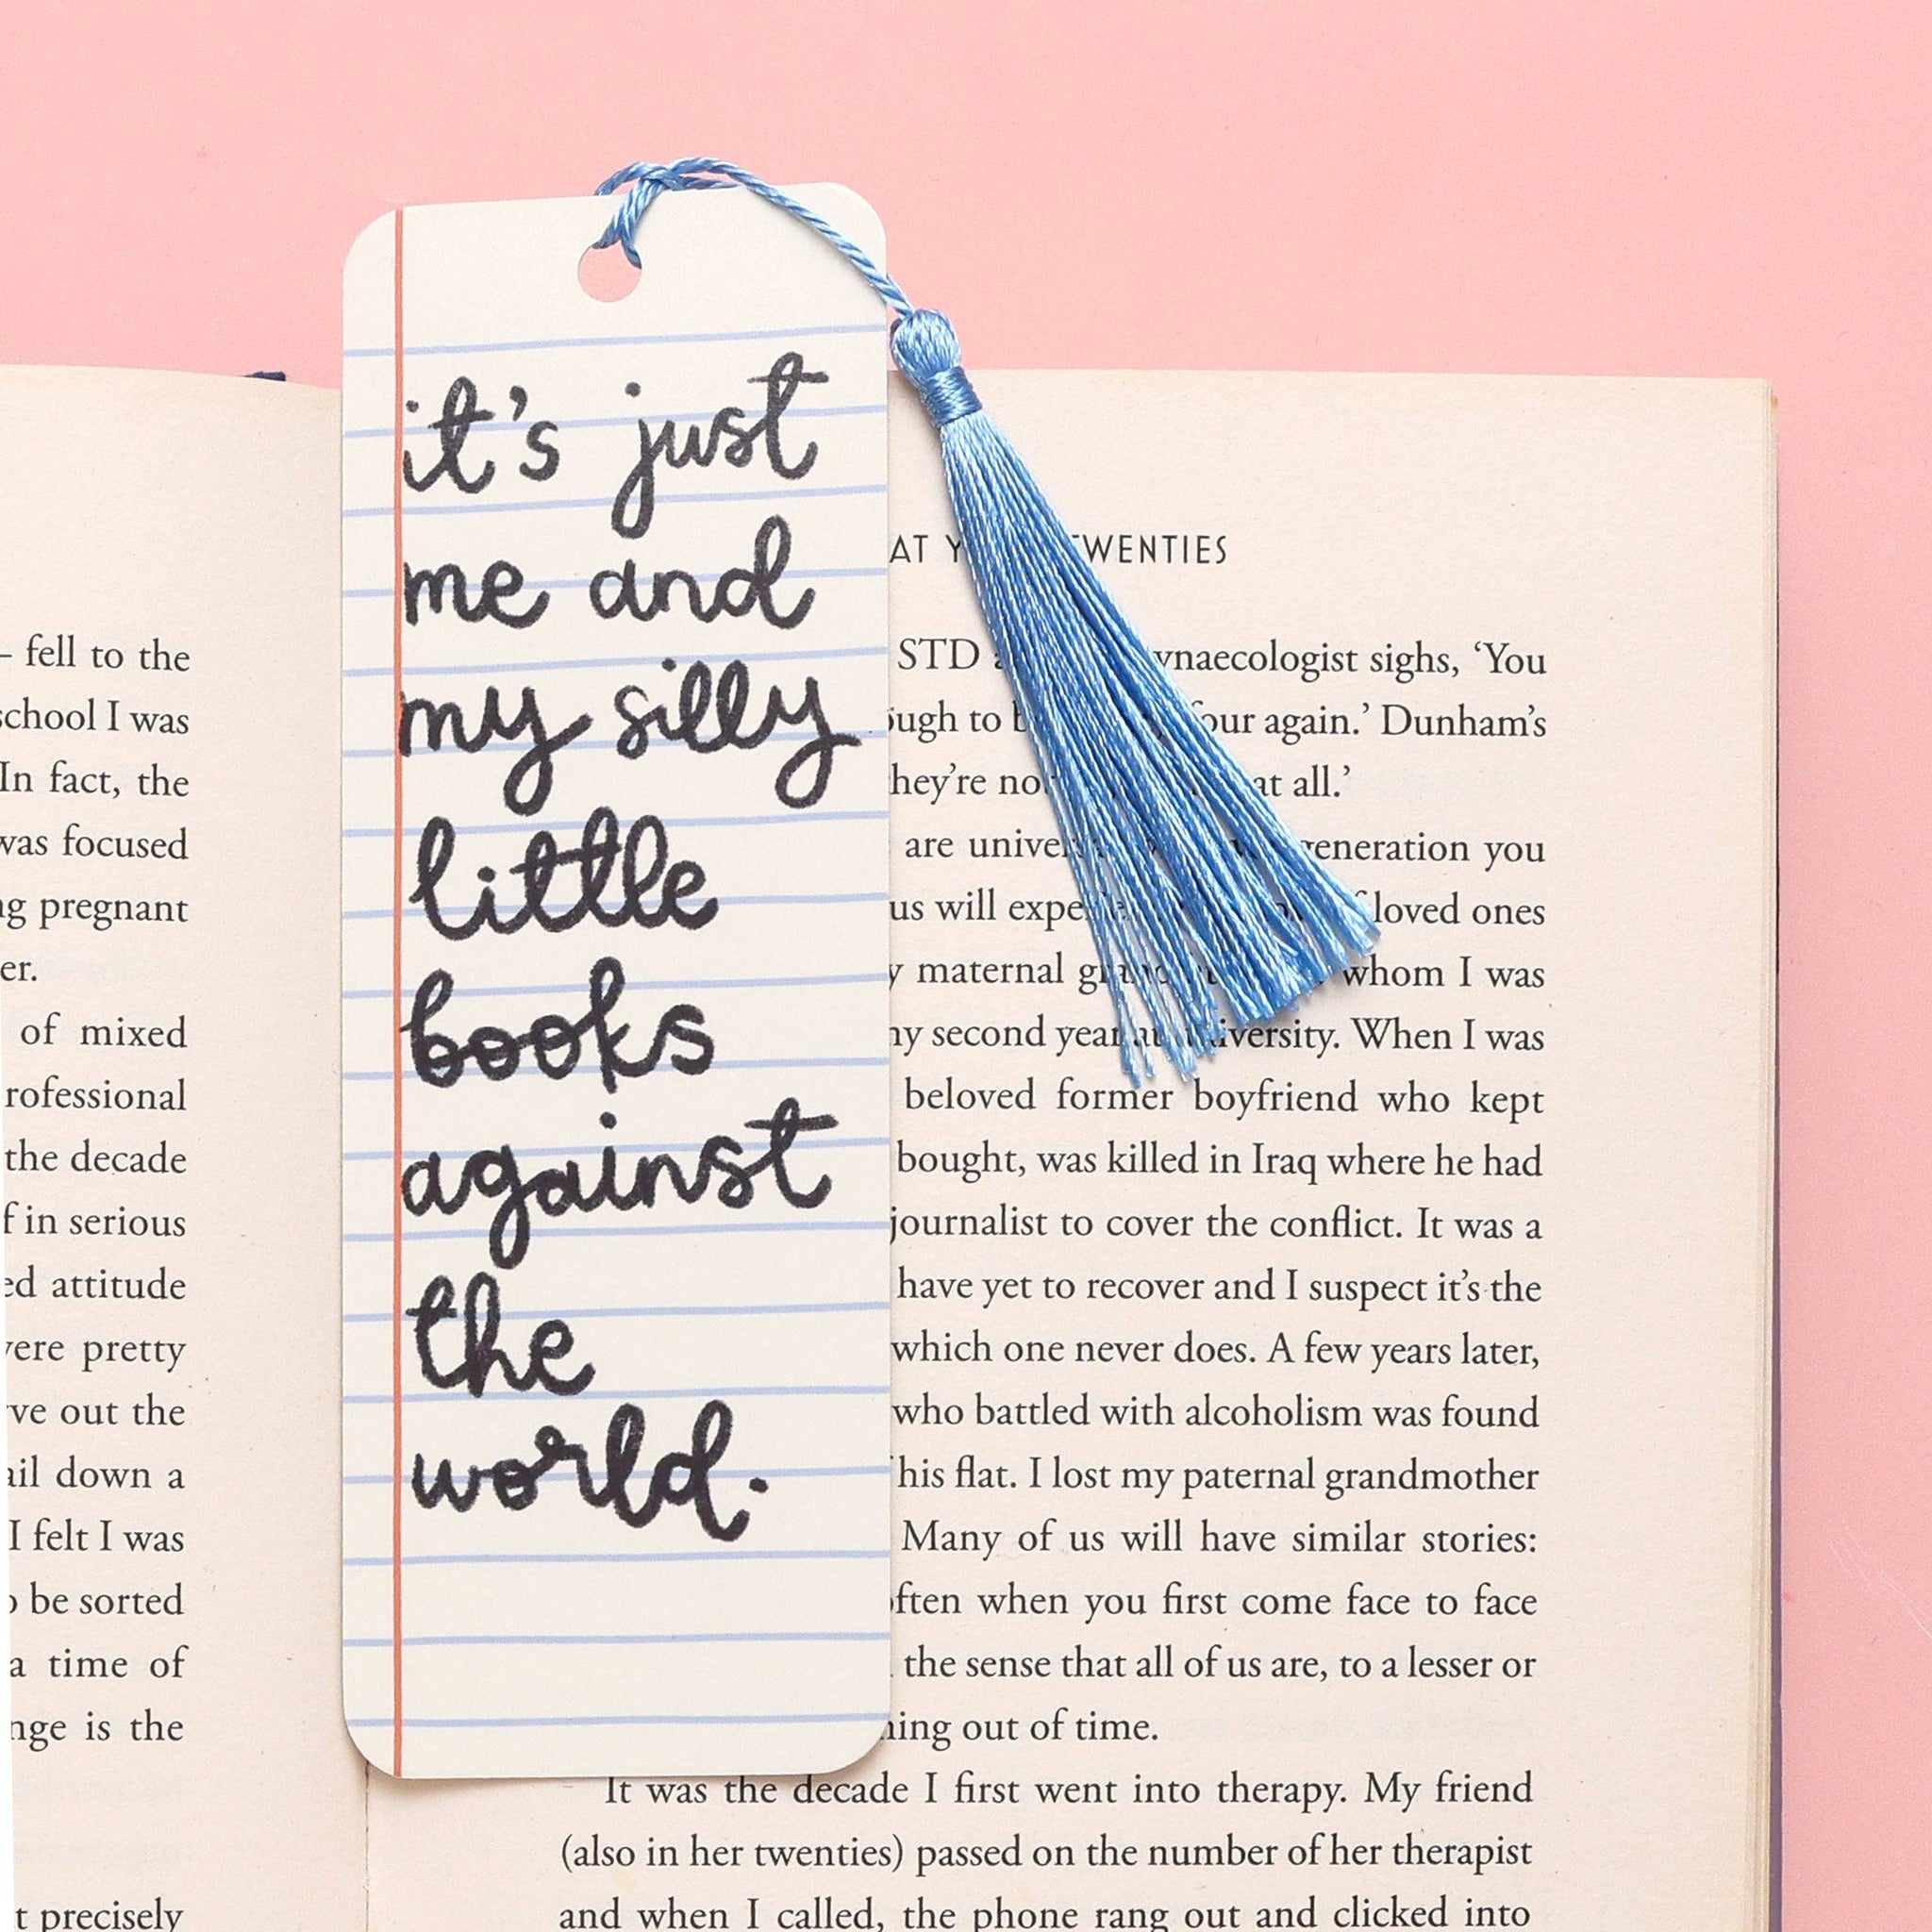 it's just
me and
my silly
little
books
against
the
world.
– fell to the
school I was
In fact, the
was focused
pregnant
of mixed
the decade
in serious
attitude
pretty
out the
down a
I felt I was
be sorted
a time of
is the
precisely
AT TWENTIES
STD sighs, ‘You
to again.’ Dunham’s
they’re at all.’
are generation you
us will loved ones
maternal whom I was
second year When I was
beloved former boyfriend who kept
bought, was killed in Iraq where he had
journalist to cover the conflict. It was a
have yet to recover and I suspect it’s the
which one never does. A few years later,
who battled with alcoholism was found
his flat. I lost my paternal grandmother
Many of us will have similar stories:
often when you first come face to face
the sense that all of us are, to a lesser or
out of time.
It was the decade I first went into therapy. My friend
(also in her twenties) passed on the number of her therapist
and when I called, the phone rang out and clicked into